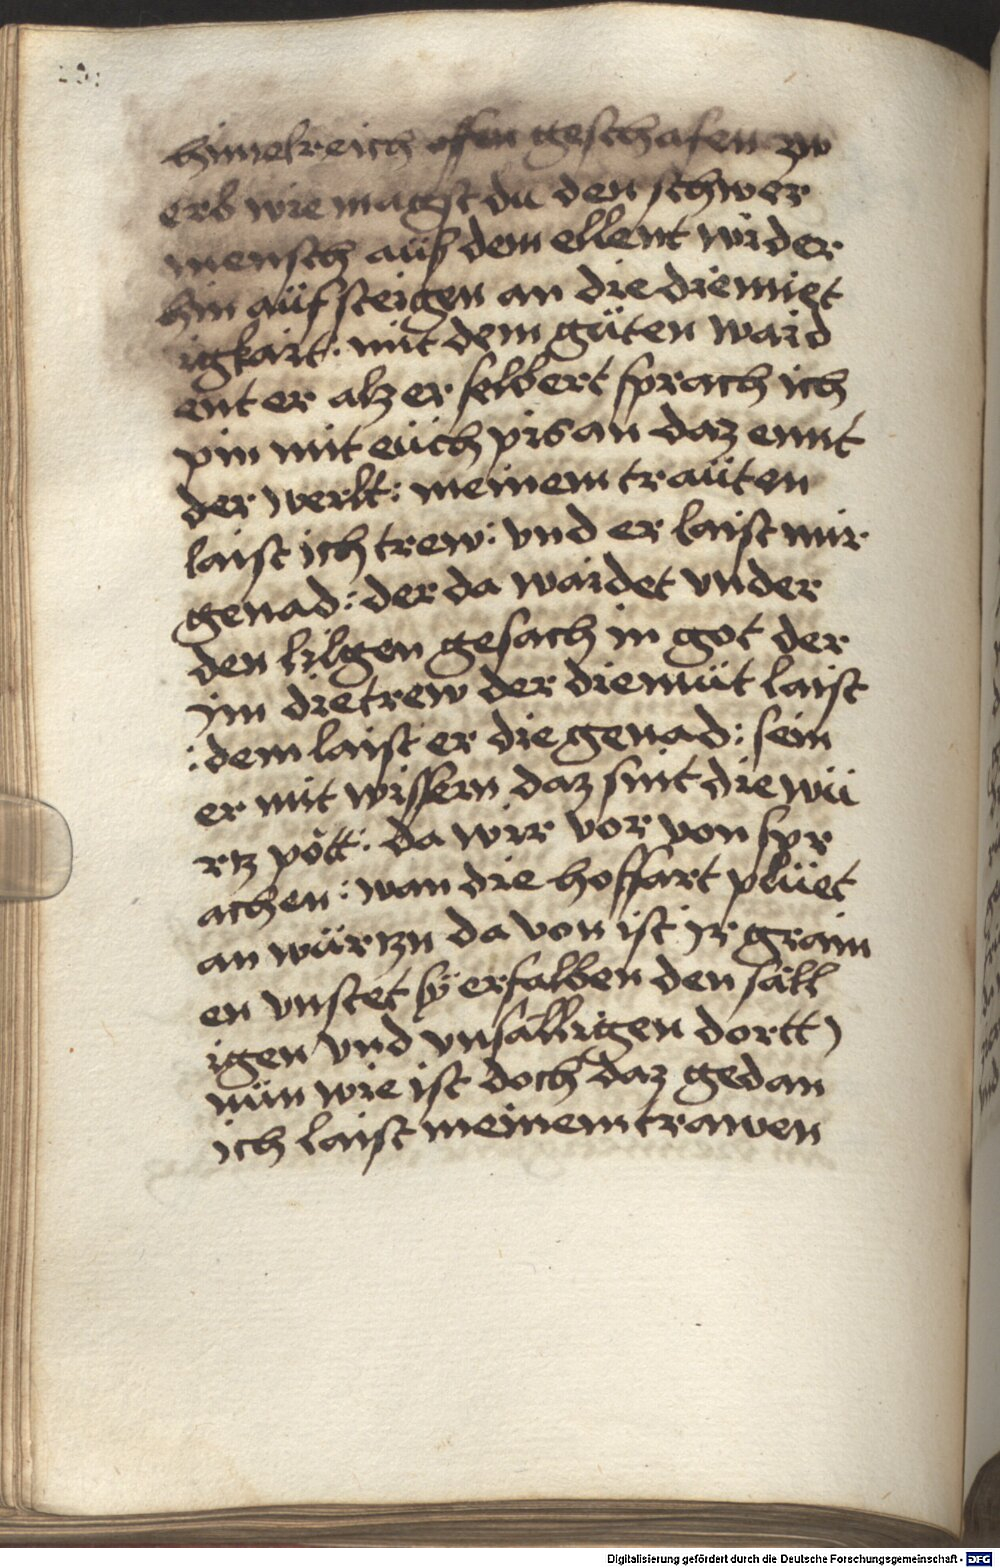 himelreich offen geschafen zw
erb wie magst du den schwer
mensch auß dem ellent wider
hin aüf steigen an die diemiet
igkait : mit dem güten waid
ent er alz er selbert sprach ich
pin mit eüch pis an daz ennt
der werlt : meinem traüten
laist ich trew : vnd er laist mir
genad : der da waidet vnder
den lilgen gesach in got der
im die trew der diemüt laist
: dem laist er die genad : sein
er mit wissern daz sint die wü
rtz pött : da wir vor von spr
achen : wan die hoffart plüet
an würtzn da von ist ir grain
en vnstet sÿ erfalben den säll
igen vnd vnsälligen dortt )
nün wie ist doch daz gedan
ich laist meinem trawen
Digitalisierung gefördert durch die Deutsche Forschungsgemeinschaft - DFG